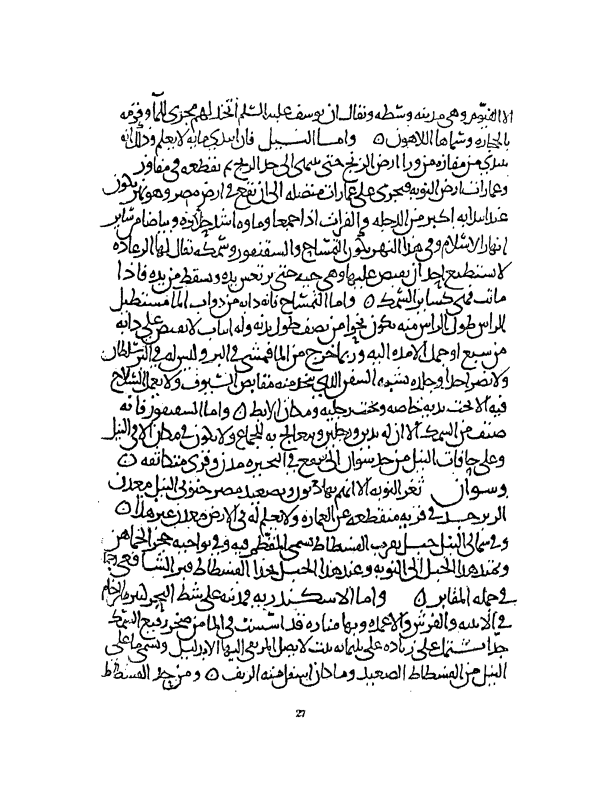 الا الفيوم وهى مدينه وسطه ويقال ان يوسف عليه السلم اتخذ لهم مجرى للما وقومه
بالحجاره وسماها اللاهون ه واما النيل فان ابتدى مايه لا يعلم وذلك انه
يبتدى من مفازه من ورا ارض الزنج حتى ينتهى الى حد الزنج ثم يقطعه فى مفاوز
وعمارات ارض النوبه فيجرى على عمارات متصله الى ان يقع فى ارض مصر وهو نهر يكون
عند امتداده اكبر من الدجله والفرات اذا جمعا وماوه اشد حلاوه وبياضا من ساير
انهار الاسلام وفى هذا النهر يكون التمساح والسقنقور وسمكه يقال لها الرعاده
لا يستطيع احد ان يقبض عليها وهى حيه حتى يرتعش يده ويسقط من يده فاذا
ماتت فهى كساير السمك ه واما التمساح فانه دابه من دواب الما مستطيل
الراس طول الراس منه يكون نحوا من نصف طول بدنه وله انياب لا يقبض على دابه
من سبع او جمل الا مده اليه وربما خرج من الما فمشى فى البر وليس له فى البر سلطان
ولا يضر احدا وجلده يشبه السفن الذى يتخذ منه مقابض السيوف ولا يعمل السلاح
فيه الا تحت يديه خاصه وتحت رجليه ومكان الابط ه واما السقنقور فانه
صنف من السمك الا ان له يدين ورجلين ويتعالج به للجماع ولا يكون فى مكان الا فى النيل
وعلى حافات النيل من حد سوان الى ان يقع فى البحيره مدن وقرى متكاثفه ه
وسوان ثغر النوبه الا انهم مهادنون وبصعيد مصر جنوبى النيل معدن
الزبرجد فى قريه منقطعه عن العماره ولا نعلم له فى الارض معدن غير هذا ه
وفى شمالى النيل جبل بقرب الفسطاط يسمى المقطم فيه وفى نواحيه حجر الخماهن
ويمتد هذا الجبل الى النوبه وعند هذا الجبل بحذا الفسطاط قبر الشافعى رحمه الله
فى جمله المقابر ه واما الاسكندريه فمدينه على شط البحر كثيره الرخام
فى الابنيه والفرش والاعمده وبها مناره قد اسست فى الما من صخر رفيع السمك
جدا مشتمل على زياده على ثلثمايه بيت لا يصل المرتقى اليها الا بدليل ويسمى ما على
النيل من الفسطاط الصعيد وما كان اسفل منه الريف ه ومن حد الفسطاط
27